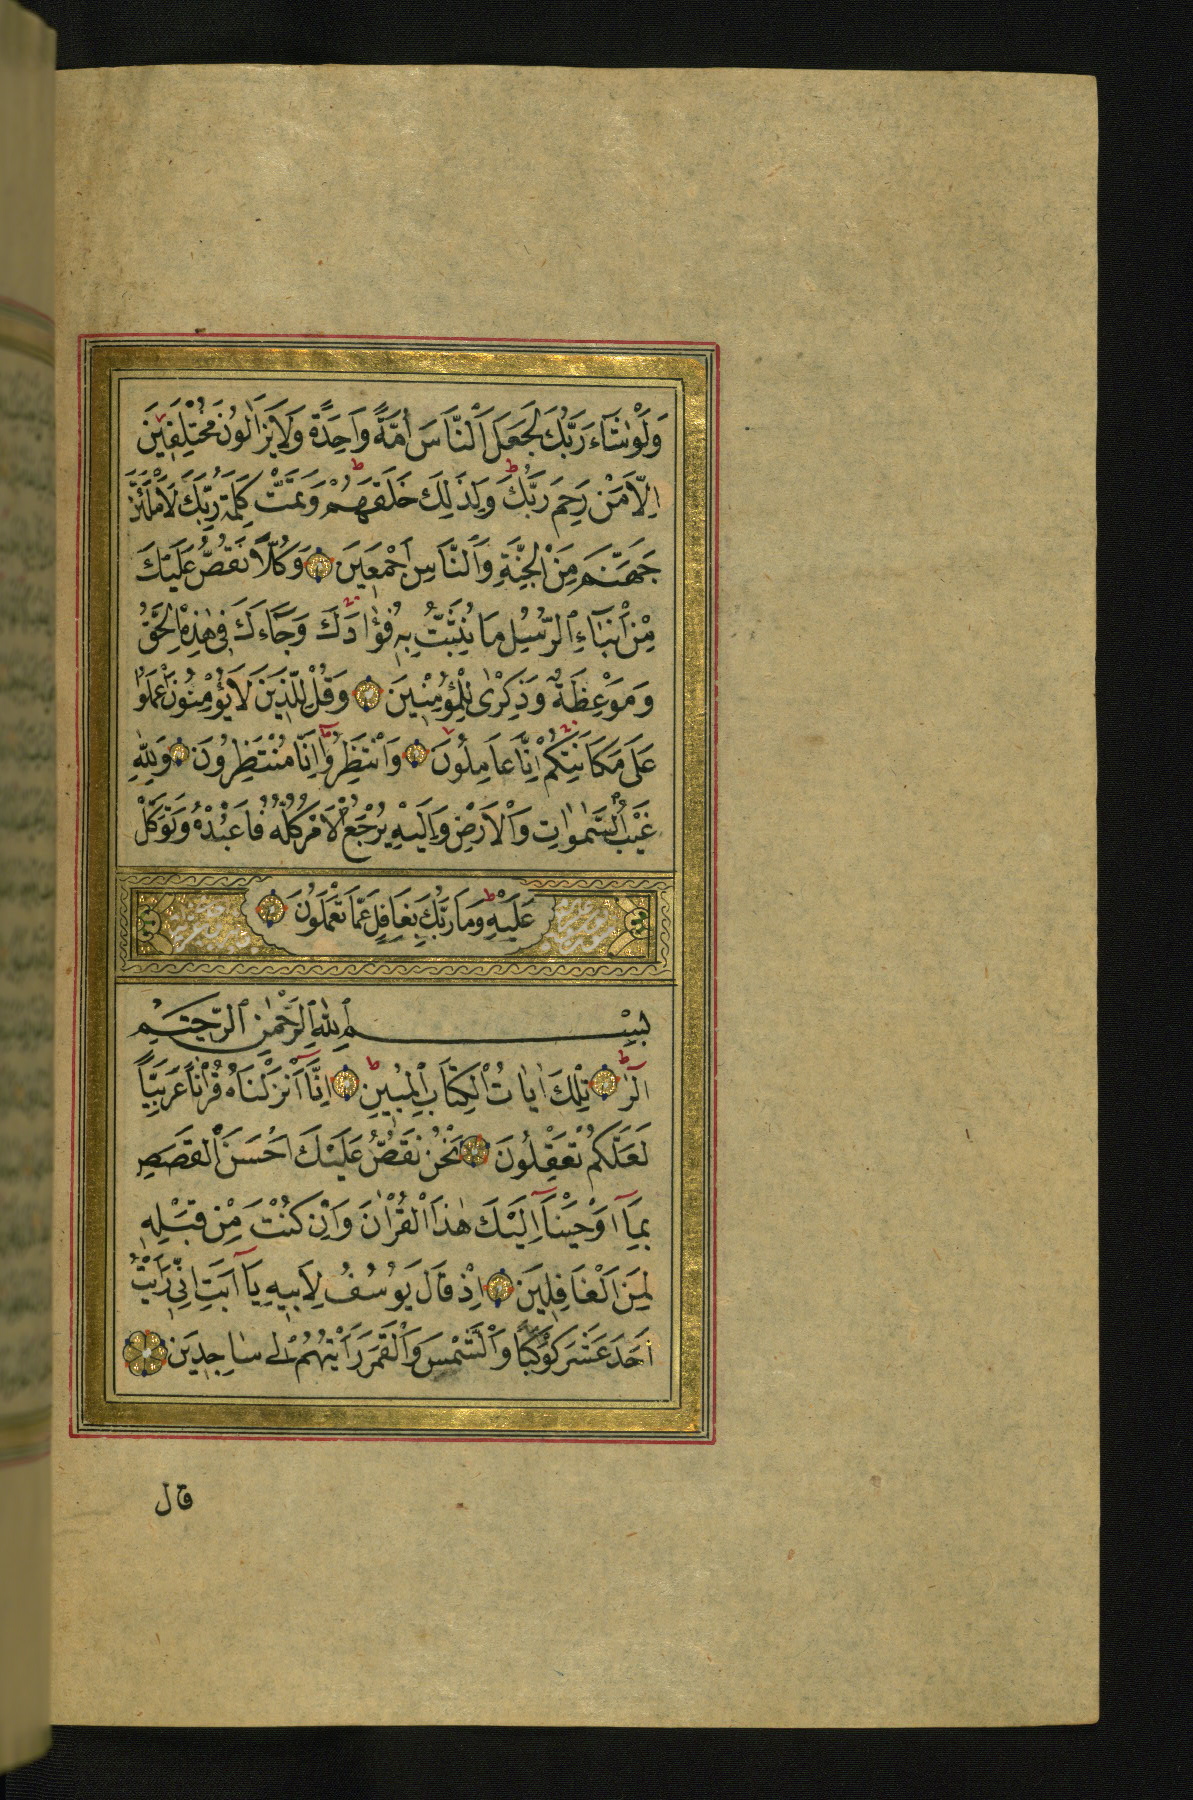 وَلَوْ شَآءَ رَبُّكَ لَجَعَلَ ٱلنَّاسَ اُمَّةً وَاحِدَةً وَلَا يَزَالُونَ مُخْتَلِفِينَ
اِلَّا مَنْ رَحِمَ رَبُّكَ وَلِذٰلِكَ خَلَقَهُمْ وَتَمَّتْ كَلِمَةُ رَبِّكَ لَاَمْلَئَنَّ
جَهَنَّمَ مِنَ ٱلْجِنَّةِ وَٱلنَّاسِ اَجْمَعِينَ وَكُلًّا نَقُصُّ عَلَيْكَ
مِنْ اَنْبَآءِ ٱلرُّسُلِ مَا نُثَبِّتُ بِهِ فُؤٰادَكَ وَجَآءَكَ فِى هٰذِهِ ٱلْحَقُّ
وَمَوْعِظَةٌ وَذِكْرٰى لِلْمُؤْمِنِينَ وَقُلْ لِلَّذِينَ لَا يُؤْمِنُونَ ٱعْمَلُوا
عَلٰى مَكَانَتِكُمْ اِنَّا عَامِلُونَ وَٱنْتَظِرُوٓا اِنَّا مُنْتَظِرُونَ وَلِلّٰهِ
غَيْبُ ٱلسَّمٰوَاتِ وَٱلْاَرْضِ وَاِلَيْهِ يُرْجَعُ ٱلْاَمْرُ كُلُّهُ فَاعْبُدْهُ وَتَوَكَّلْ
عَلَيْهِ وَمَا رَبُّكَ بِغَافِلٍ عَمَّا تَعْمَلُونَ
بِسْمِ ٱللّٰهِ ٱلرَّحْمٰنِ ٱلرَّحِيمِ
الٓرٰ تِلْكَ اٰيَاتُ ٱلْكِتَابِ ٱلْمُبِينِ اِنَّآ اَنْزَلْنَاهُ قُرْاٰنًا عَرَبِيًّا
لَعَلَّكُمْ تَعْقِلُونَ نَحْنُ نَقُصُّ عَلَيْكَ اَحْسَنَ ٱلْقَصَصِ
بِمَآ اَوْحَيْنَآ اِلَيْكَ هٰذَا ٱلْقُرْاٰنَ وَاِنْ كُنْتَ مِنْ قَبْلِهِ
لَمِنَ ٱلْغَافِلِينَ اِذْ قَالَ يُوسُفُ لِاَبِيهِ يَآ اَبَتِ اِنِّى رَاَيْتُ
اَحَدَ عَشَرَ كَوْكَبًا وَٱلشَّمْسَ وَٱلْقَمَرَ رَاَيْتُهُمْ لِى سَاجِدِينَ
قال